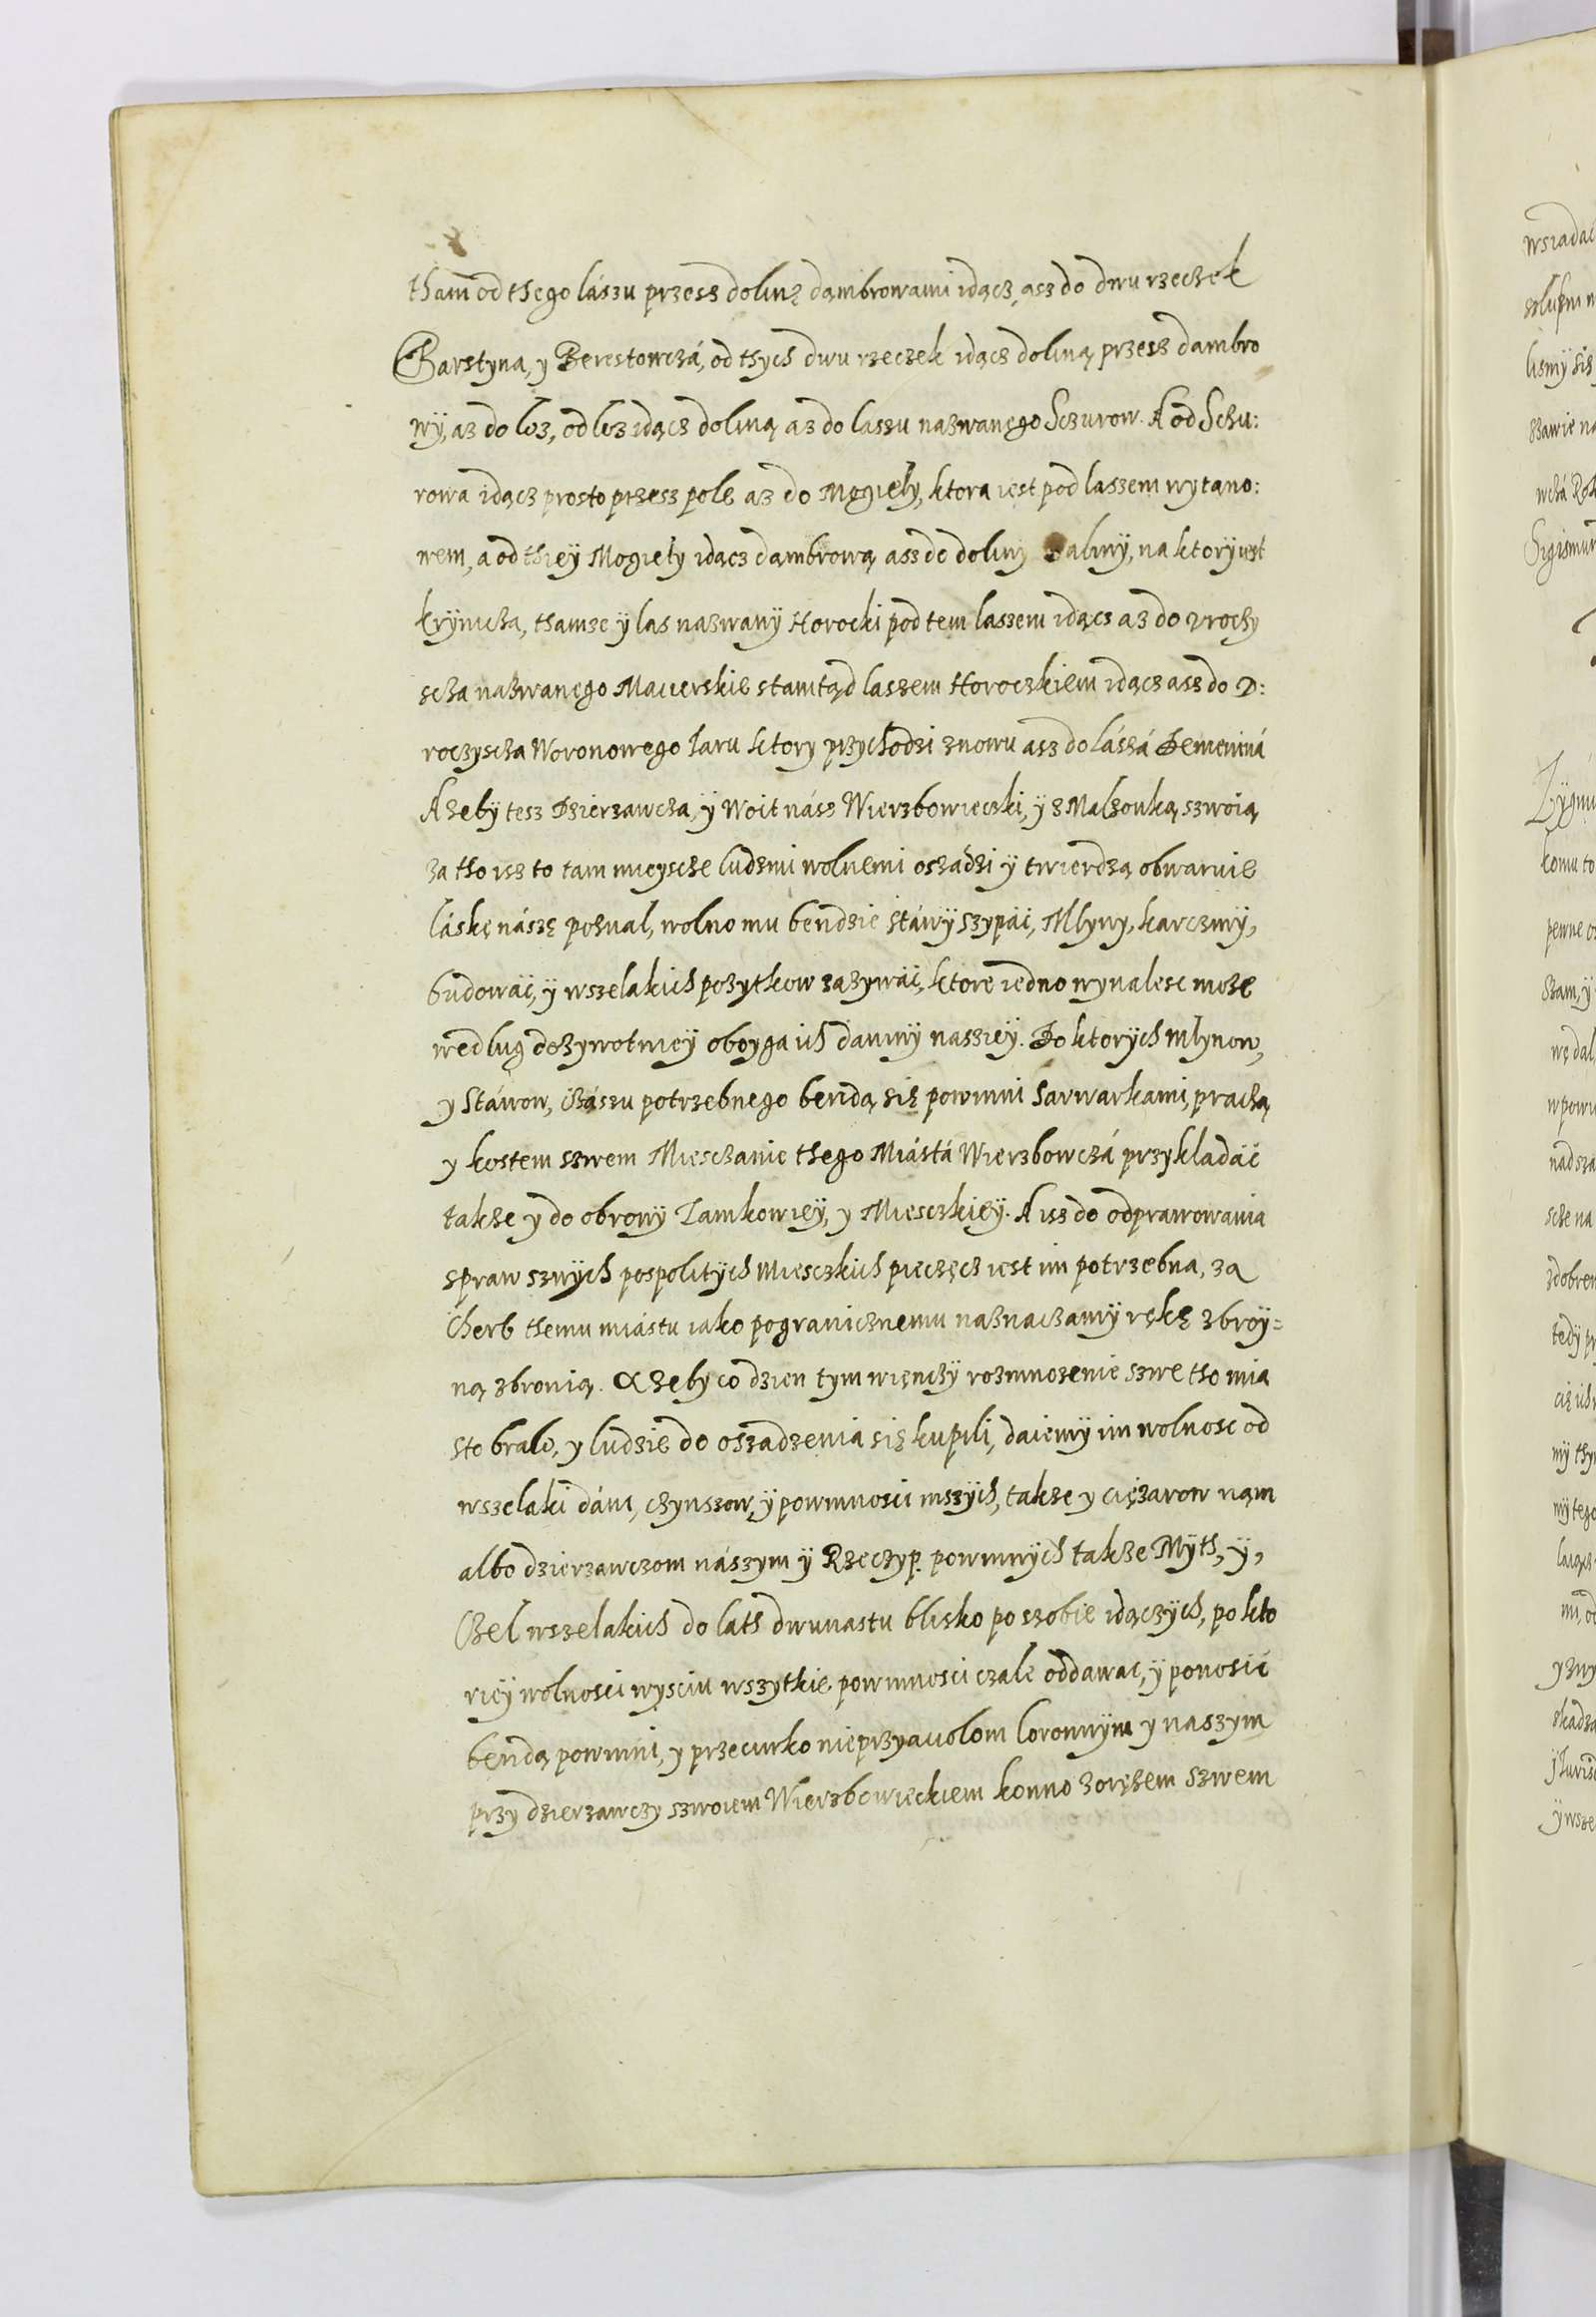 tham od thego lászu przesz dolinę dąmbrowami idącz, asz do dwu rzeczek
Barstyna, y Berestowczá, od thych dwu rzeczek idącz doliną przesz dambro
wÿ, az do loz, od loz idącz doliną az do lassu nazwanęgo Sczurow. A od Sczu:
rowa idącz prosto przesz pole az do Mogieły, ktora iest pod laszem wytąno:
wem, a od thieÿ Mogieły idącz dąmbrową asz do doliny aliny, na ktorÿ iest
krÿnicza, thamze ÿ las nazwanÿ Horocki pod tem laszem idącz az do vroczy
scza nazwanęgo Macierskie stamtąd laszem Horoczkiem idącz asz do V:
roczyscza Woronowego Iaru ktory przychodzi znowu asz do lászá Demeniná
A zebÿ tesz Dzierzawcza, ÿ Woit nász Wierzbowieczki, ÿ z Malzonką szwoią
za tho isz to tam mieyscze ludzmi wolnemi oszadzi ÿ twierdzą obwaruie
láskę nászę poznal, wolno mu bendzie stáwÿ szypác, Młyny, karczmÿ,
budowác, ÿ wszelakich pozytkow zazywác, ktore iedno wynalesc moze
według dozywotnieÿ oboyga ich daniny nasziey. Do ktorÿch młynow,
y Stáwow, czászu potrzebnego bendą się powinni Sarwarkami, praczą
y kostem szwem Miesczanie thego Miástá Wierzbowczá przykladác
takze y do obronÿ Zamkowieÿ, y Miesczkieÿ. A isz do odprawowania
spraw szwÿch pospolitÿch Miesczkich pieczęcz iest im potrzebna, za
Cherb themu miástu iako pogranicznemu naznaczamÿ rękę zbroÿ=
ną zbronią. A zeby co dzien tym więnczÿ rozmnozenie szwe tho mia
sto bralo, y ludzie do oszadzenia się kupili, daiemÿ im wolnosc od
wszelaki dáni, czynszow, ÿ powinnosci inszÿch, takze y ciężarow nąm
albo dzierzawczom nászym ÿ Rzeczyp. powinnÿch takze Mÿth, ÿ,
Czel wszelakich do lath dwunastu blisko po szobie idączÿch, po kto
rieÿ wolnosci wyściu wszytkie powinnosci czale oddawac, ÿ ponosić
bendą powinni, y przeciwko nieprzyaciolom Coronnÿm y naszym
przy dzierzawczy szwoiem Wierzbowieckiem konno zorężem szwem